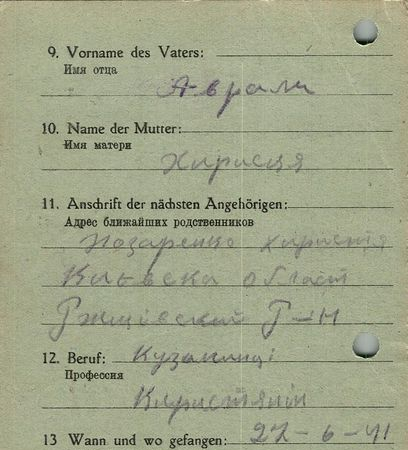 9. Vorname des Vaters:
Имя отца
Аврам
10. Name der Mutter:
Имя матери
11. Anschrift der nächsten Angehörigen:
Адрес ближайших родственников
Назаренко
Киевска област
Ржищовский Р-н
12. Beruf:
Профессия
13 Wann und wo gefangen: 27-6-41